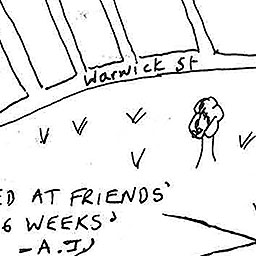 Warwick St
ED AT FRIENDS'
6 WEEKS'
-A.J